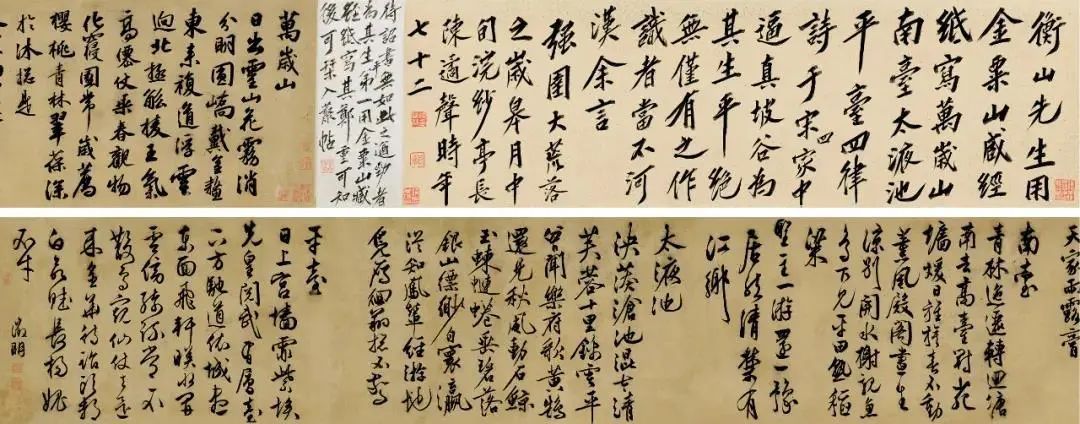 衡山先生用
金粟山藏經
紙寫萬歲山
南臺太液池
平臺四律
詩于宋四家中
逼真坡谷為
其生平絕
無僅有之作
識者當不河
漢余言
強圉大荒落
之歲皋月中
旬浣紗亭長
陳遹聲時年
七十二
待詔書無如此之遒勁者
為其生平第一用金粟山藏
經紙寫其鄭重可知
後可栞入叢帖
萬歲山
日出靈山花霧消
分明圓嶠戴金鰲
東來複道浮雲
迥北極觚棱王氣
高僊仗乘春觀物
化寢園常歲薦
櫻桃青林翠葆深
於沐總是
天家雨露膏
南臺
青林迤邐轉迴塘
南去高臺對苑
墻煖日旌旗春不動
薰風殿閣晝生
涼別開水榭親魚
鳥下見平田熟稻
粱
聖主一遊還一豫
居然清禁有
江鄉
太液池
泱漭滄池混太清
芙蓉十里錦雲平
曾聞樂府歌黃鵠
還見秋風動石鯨
玉蝀蜿蜒垂碧落
銀山縹緲自寰瀛
從知鳳輦經游地
鳧雁徊翔總不驚
平臺
日上宮墻霏紫埃
先皇閱武有層臺
下方馳道依城盡
東面飛軒映水開
雲傍綺疏常不
散鳥窺仙仗去還
來金華待詔頭都
白欲賦長楊媿
不才
徵明